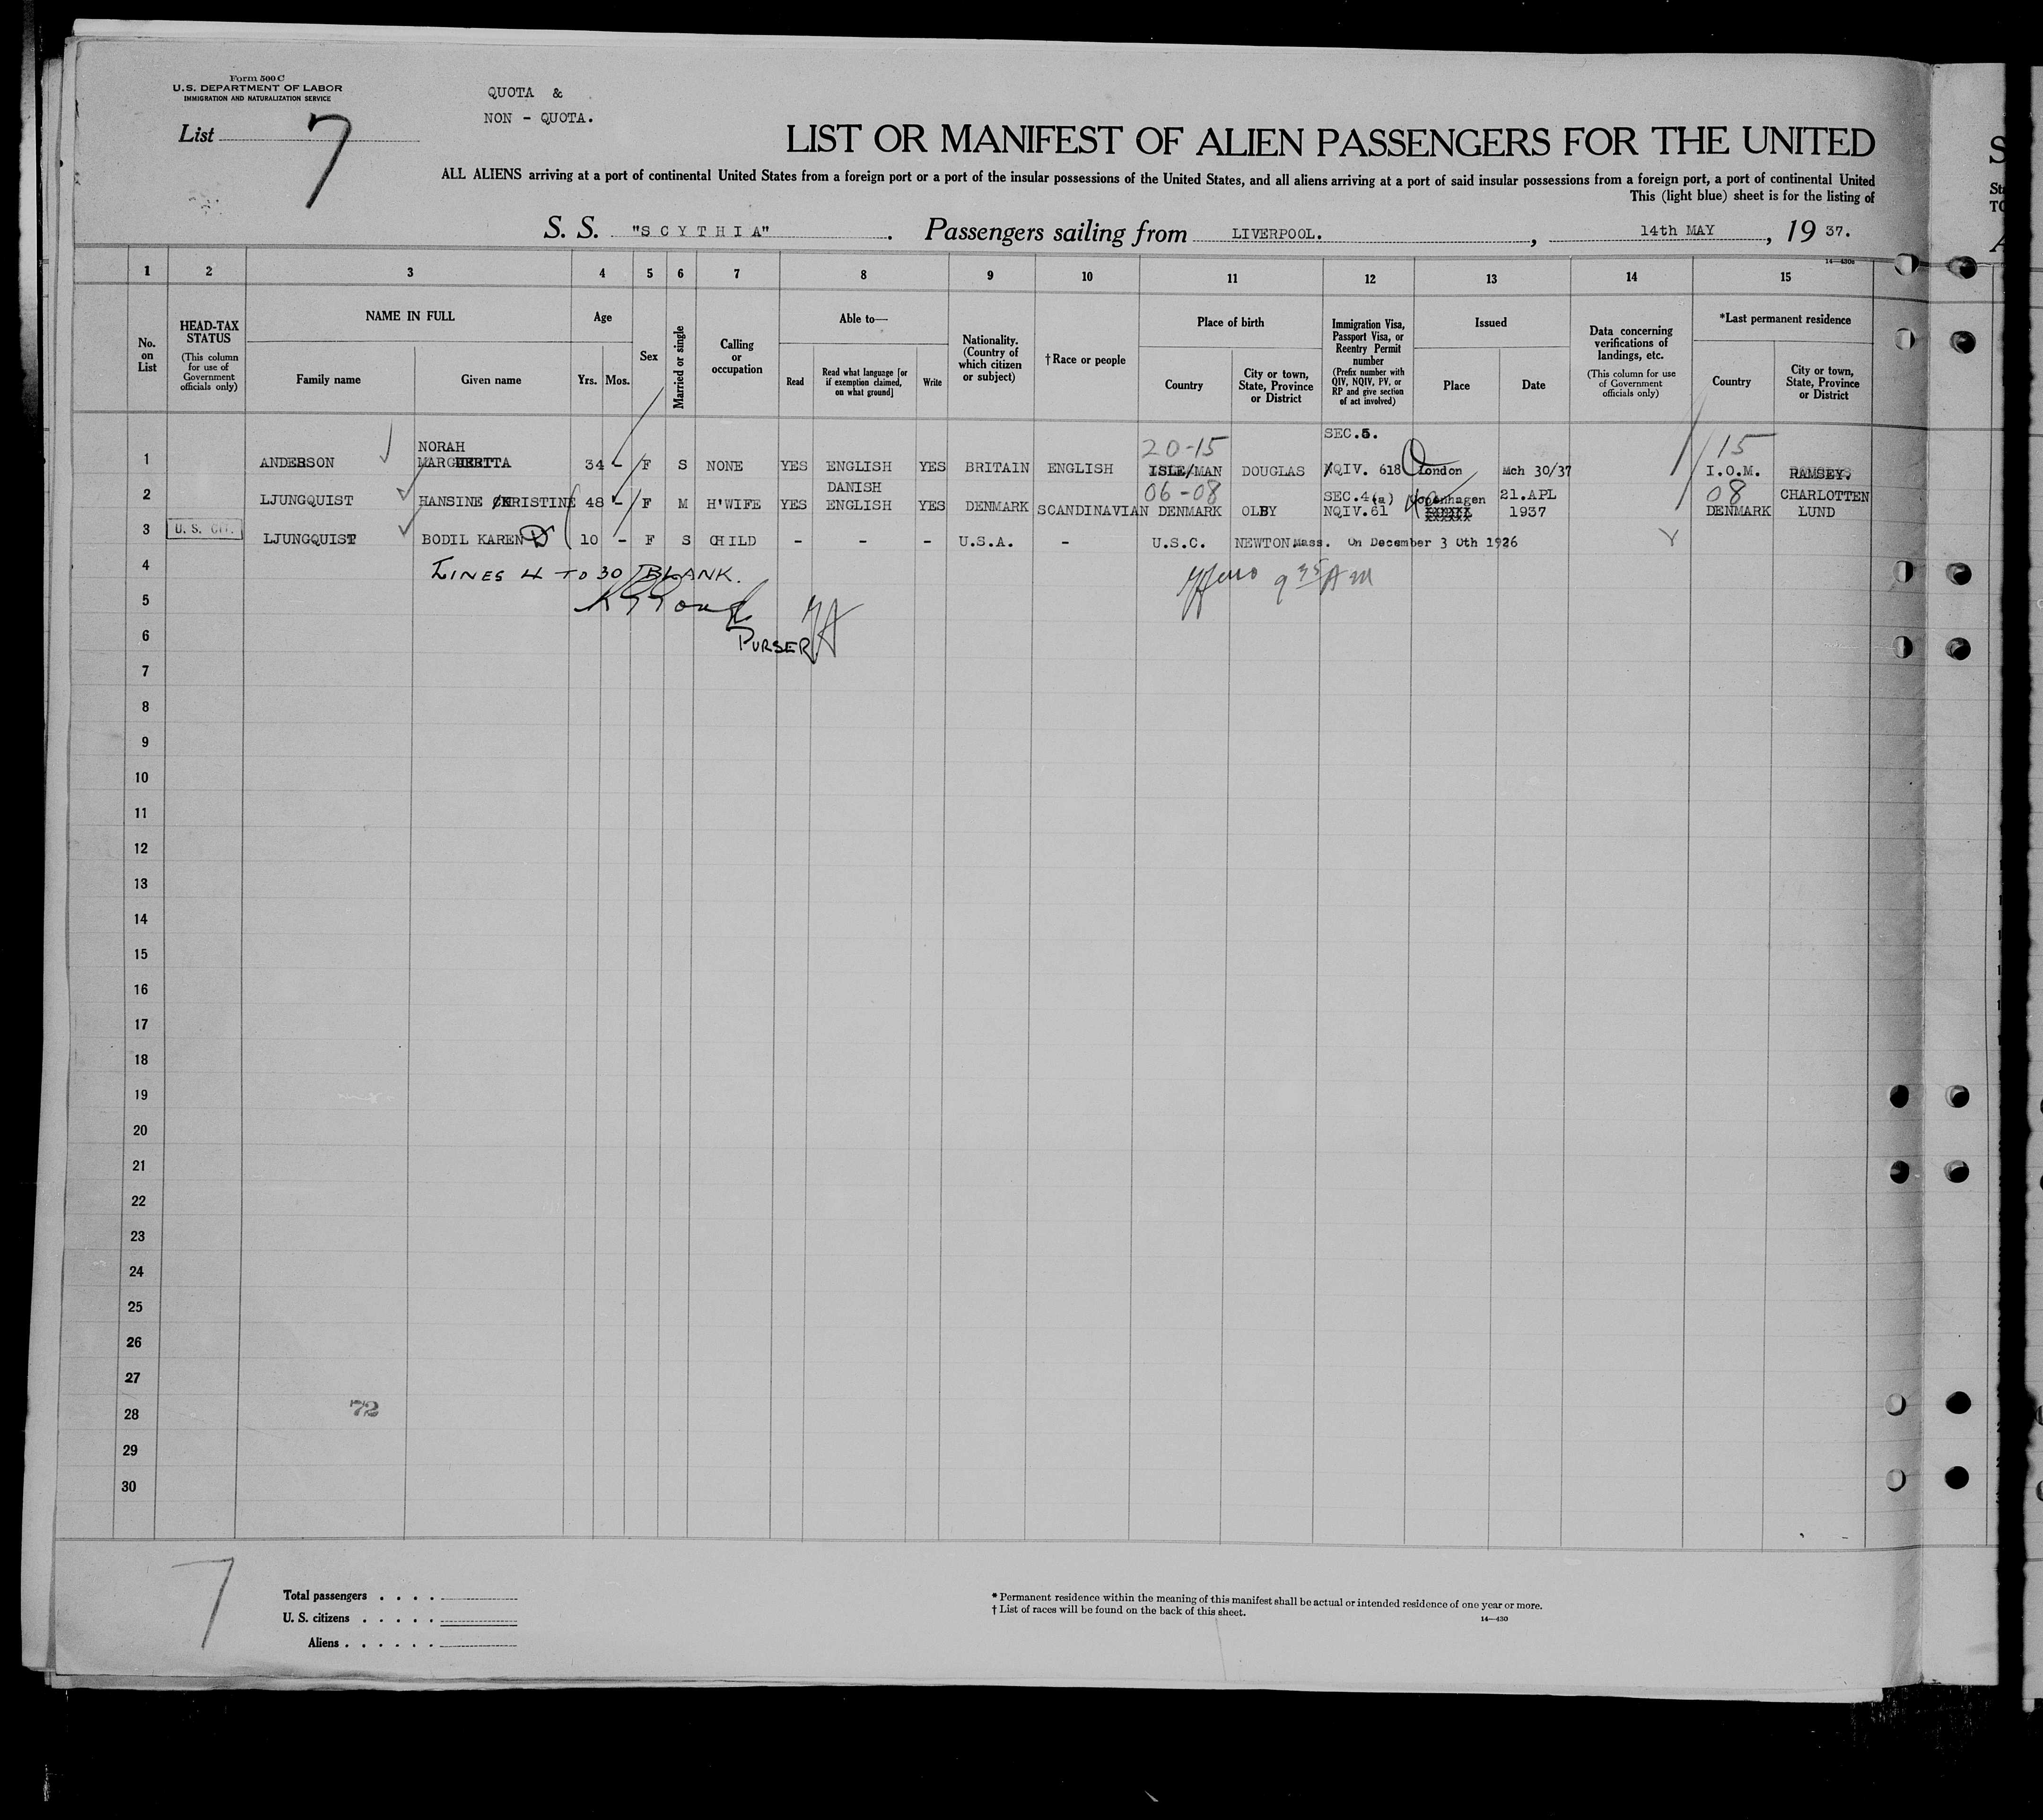 Form 500 C
U.S. DEPARTMENT OF LABOR
IMMIGRATION AND NATURALIZATION SERVICE
QUOTA &
NON - QUOTA.
List 7
LIST OR MANIFEST OF ALIEN PASSENGERS FOR THE UNITED
ALL ALIENS arriving at a port of continental United States from a foreign port or a port of the insular possessions of the United States, and all aliens arriving at a port of said insular possessions from a foreign port, a port of continental United
This (light blue) sheet is for the listing of
S. S. "SCYTHIA". Passengers sailing from LIVERPOOL., 14th MAY, 19 37.
14—430c
1 2 3 4 5 6 7 8 9 10 11 12 13 14 15
No. on List
HEAD-TAX STATUS
(This column for use of Government officials only)
NAME IN FULL
Family name Given name
Age
Yrs. Mos.
Sex
Married or single
Calling or occupation
Able to—
Read Read what language [or if exemption claimed, on what ground] Write
Nationality. (Country of which citizen or subject)
†Race or people
Place of birth
Country City or town, State, Province or District
Immigration Visa, Passport Visa, or Reentry Permit number
(Prefix number with QIV, NQIV, PV, or RP and give section of act involved)
Issued
Place Date
Data concerning verifications of landings, etc.
(This column for use of Government officials only)
*Last permanent residence
Country City or town, State, Province or District
NORAH 20-15 SEC.5. 15
1 ANDERSON MARGHERITA 34 - F S NONE YES ENGLISH YES BRITAIN ENGLISH ISLE/MAN DOUGLAS QIV. 618 London Mch 30/37 I.O.M. RAMSEY.
DANISH 06-08 SEC.4(a) Copenhagen 21.APL 08 CHARLOTTEN
2 LJUNGQUIST HANSINE KRISTINE 48 - F M H'WIFE YES ENGLISH YES DENMARK SCANDINAVIAN DENMARK OLBY NQIV.61 1937 DENMARK LUND
3 U. S. CIT. LJUNGQUIST BODIL KAREN 10 - F S CHILD - - - U.S.A. - U.S.C. NEWTON Mass. On December 3 0th 1926
4 LINES 4 TO 30 BLANK. 9 35 AM
5
6 PURSER
7
8
9
10
11
12
13
14
15
16
17
18
19
20
21
22
23
24
25
26
27
28 72
29
30
7
Total passengers . . . .
U. S. citizens . . . . .
Aliens . . . . . .
* Permanent residence within the meaning of this manifest shall be actual or intended residence of one year or more.
† List of races will be found on the back of this sheet.
14—430